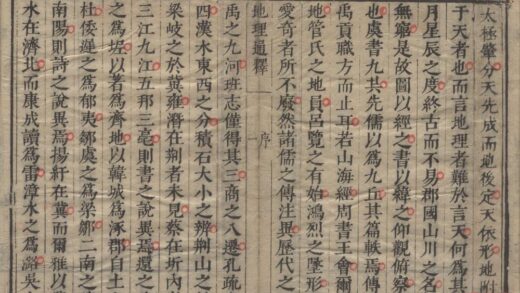 太極肇分天先成而地後定天依形地附
于天者也而言地理者難於言天何爲其
月星辰之度終古而不易郡國山川之名
無窮是故圖以經之書以緯之仰觀俯察
也虞書九共先儒以爲九丘其篇軼焉傳
禹貢職方而止耳若山海經周書王會爾
地管氏之地員呂覽之有始鴻烈之墜形
愛奇者所不廢然諸儒之傳注異歷代之
地理通釋 序 一
禹之九河班志僅得其三商之八遷孔疏
四漢水東西之分積石大小之辨荆山之
梁岐之於冀雍潛在荆者未見蔡在圻內
三江九江五邦三亳則書之說異焉還之
之爲堤以著爲齊地以韓城爲涿郡自土
杜倭遲之爲郁夷鄒虞之爲梁鄒二南之
南陽則詩之說異焉揚紆在冀而爾雅以
水在濟北而康成讀爲雷漳水之爲潞吳